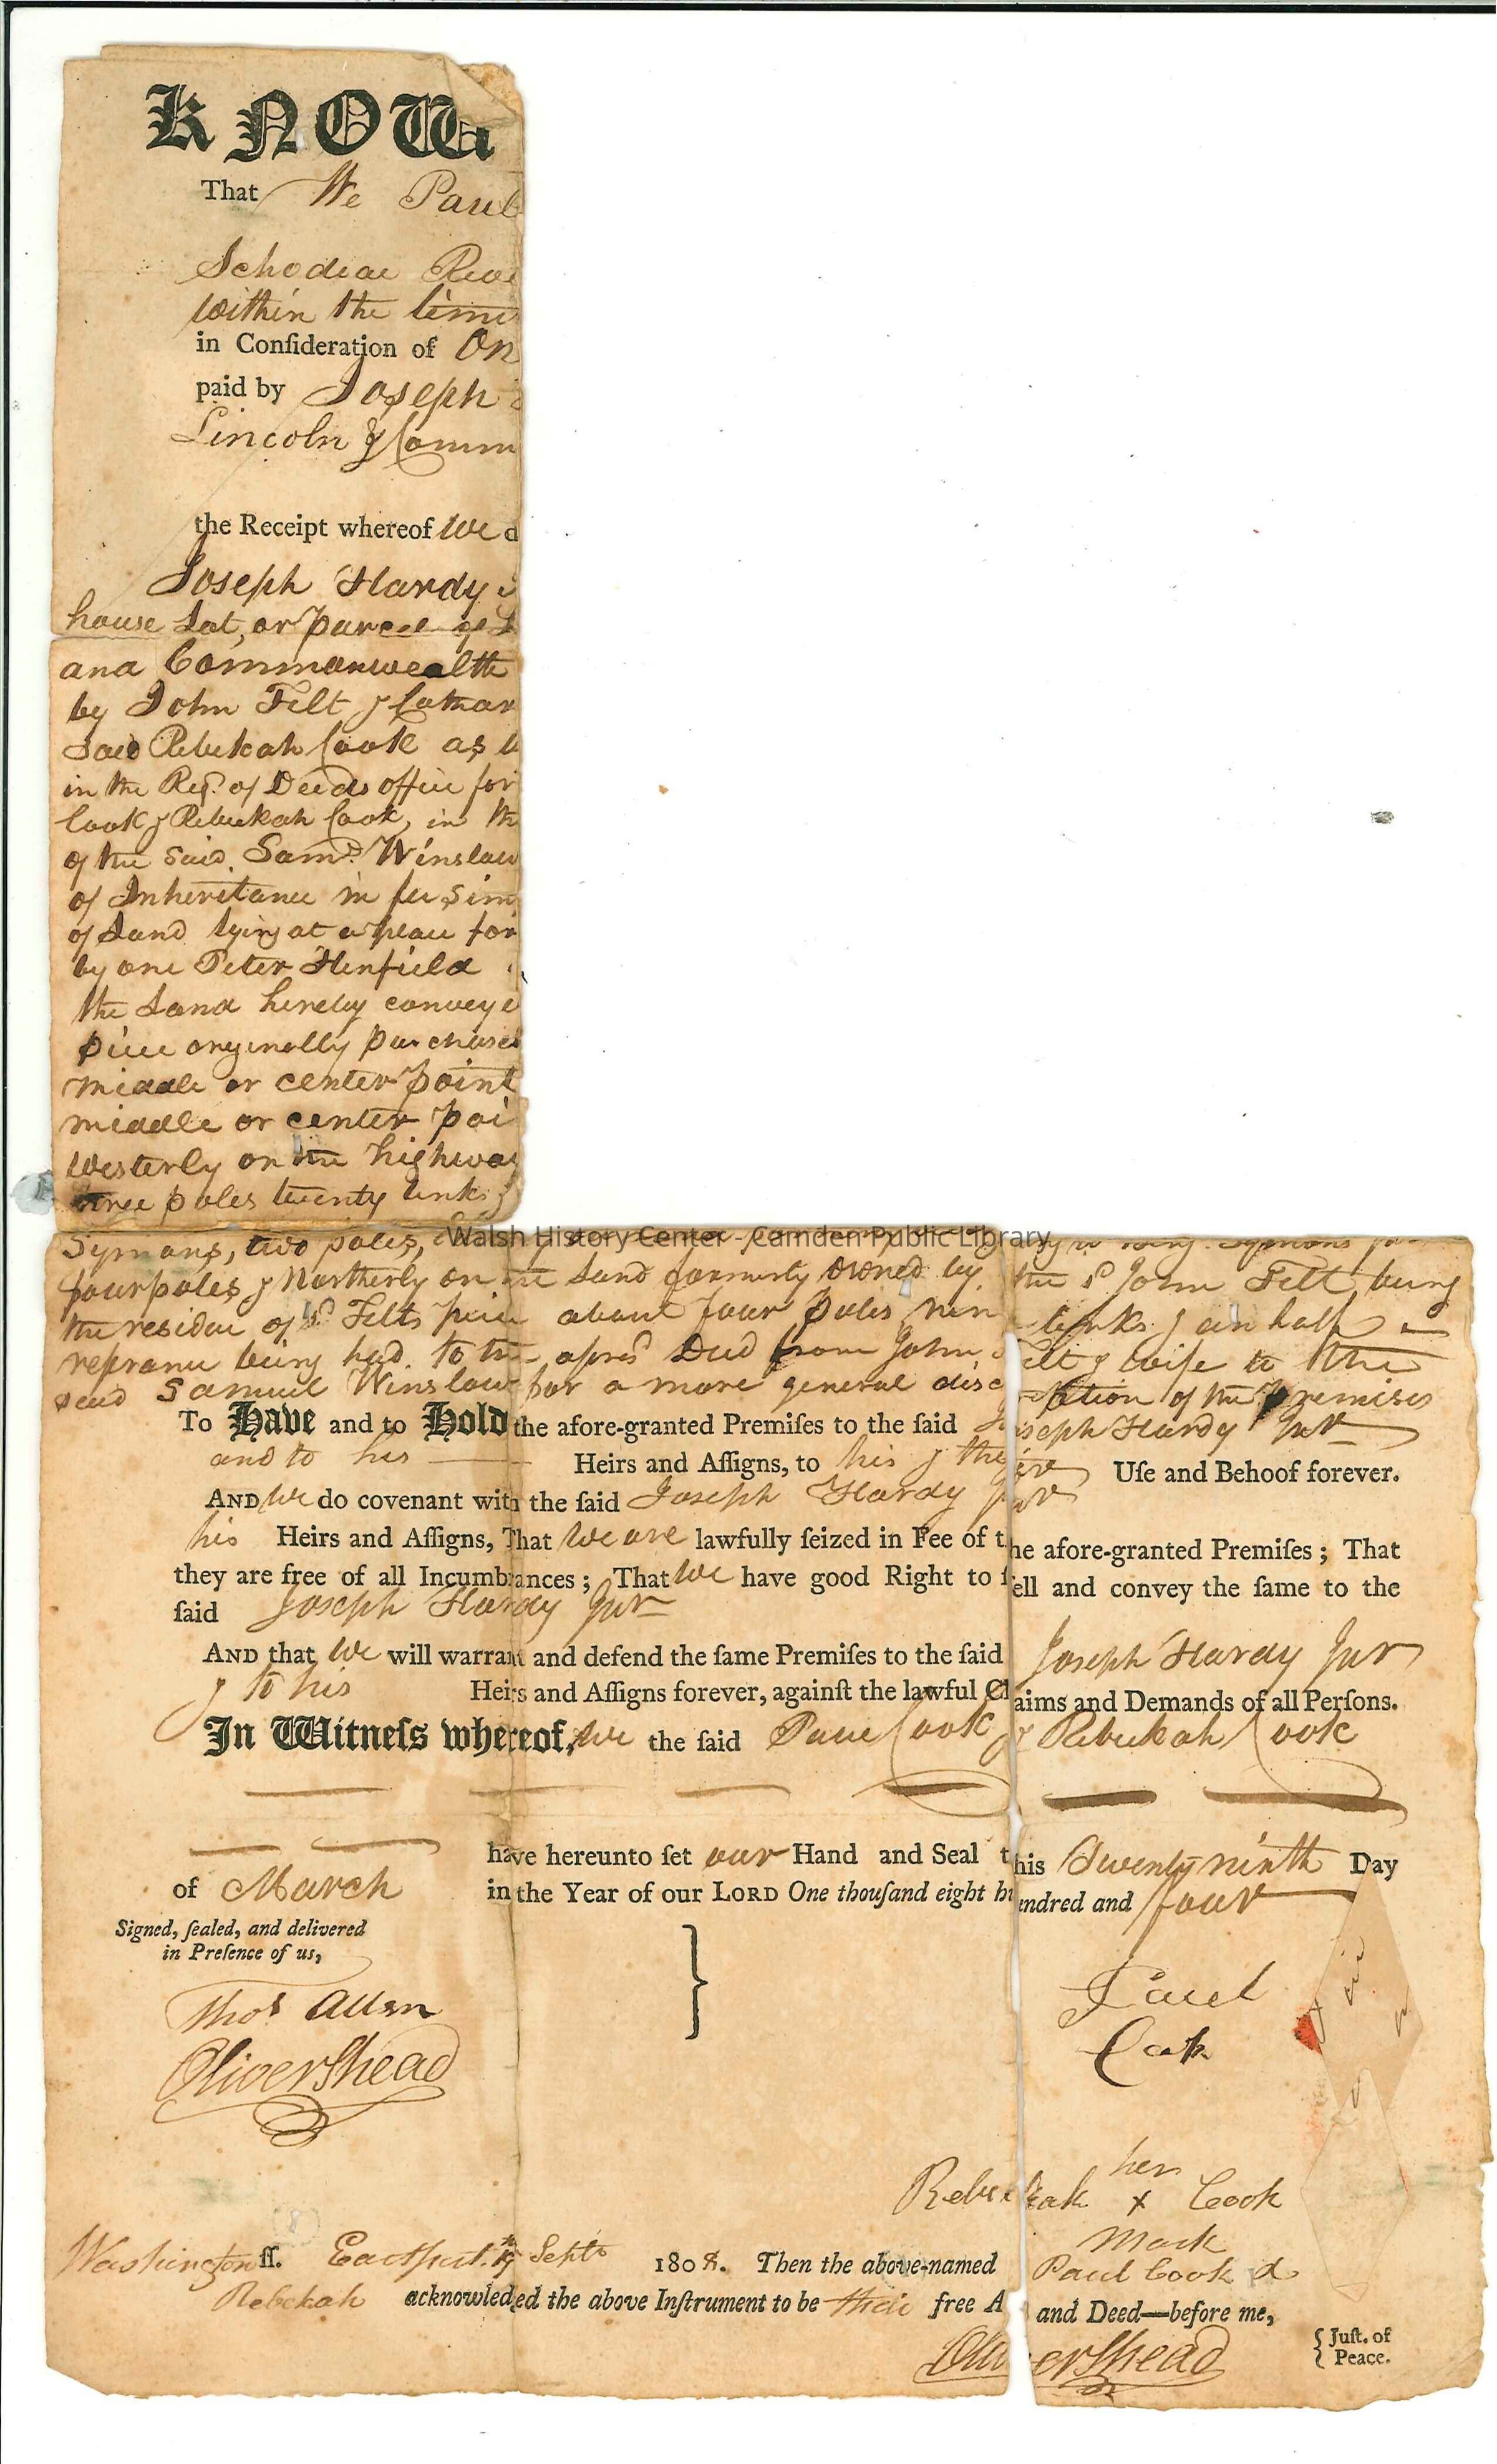 KNOW
That We Paul
Schodiac Rive
within the limi
in Conſideration of On
paid by Joseph
Lincoln & Comm
the Receipt whereof We d
Joseph Hardy
house Lot, or parcel of L
and Commonwealth
by John Felt & Cathar
said Rebekah Cook as
in the Reg.r of Deeds office for
Cook & Rebekah Cook, in th
of the said Saml Winslow
of Inheritance in fee Sim
of Land lying at a place for
by one Peter Henfield
the Land hereby conveye
piece orginally purchased
middle or center point
middle or center poi
Westerly on the highway
three poles twenty links &
Symons, two poles,
Walsh History Center - Camden Public Library
four poles & Northerly on the Land formerly owned by the sd John Felt, being
the residue of sd Felts piece about four poles nin links & an half
refrance being had to the afores.d Deed from John Felt & wife to the
said Samuel Winslow for a more general discreption of the Premises
To Have and to Hold the afore-granted Premiſes to the ſaid Joseph Hardy Junr
and to his Heirs and Aſſigns, to his & their Uſe and Behoof forever.
AND We do covenant with the ſaid Joseph Hardy Junr
his Heirs and Aſſigns, That We are lawfully ſeized in Fee of the afore-granted Premiſes; That
they are free of all Incumbrances; That We have good Right to ſell and convey the ſame to the
ſaid Joseph Hardy Junr
AND that We will warrant and defend the ſame Premiſes to the ſaid Joseph Hardy Junr
& to his Heirs and Aſſigns forever, againſt the lawful Claims and Demands of all Perſons.
In Witneſs whereof, We the ſaid Paul Cook & Rebekah Cook
have hereunto ſet our Hand and Seal this Twenty ninth Day
of March in the Year of our LORD One thouſand eight hundred and four
Signed, ſealed, and delivered
in Preſence of us,
Thos Allen
Oliver Shead
Paul
Cook
her
Rebekah x Cook
Mark
Washington ſſ. Eastport. 19th Septr 1808. Then the above-named Paul Cook &
Rebekah acknowledged the above Inſtrument to be their free A and Deed—before me,
Oliver Shead { Juſt. of
Peace.